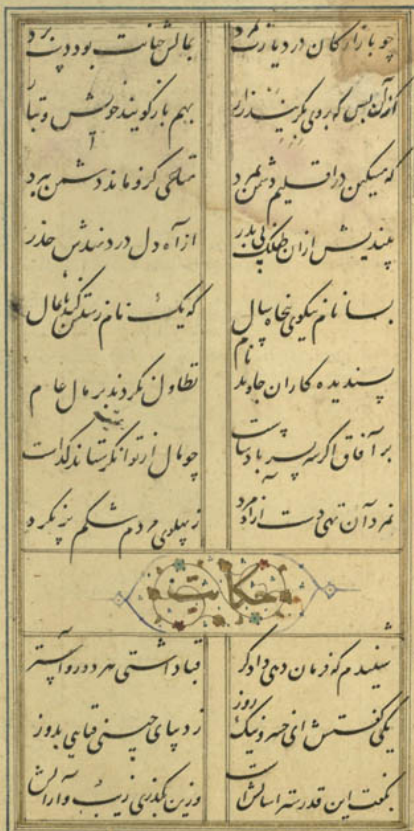 چو بازارگان در دیارت بمرد بمالش خیانت بود دستبرد
کزان پس که بر وی بگریند زار بهم باز گویند خویش و تبار
که مسکین در اقلیم دشمن بمرد متاعی کزو ماند دشمن ببرد
بیندیش از آن طفلک بی پدر از آه دل دردمندش حذر
بسا نام نیکوی پنجاه سال که یک نام زشتش کند پایمال
پسندیده کاران جاوید نام تطاول نکردند بر مال عام
بر آفاق اگر سر بسر پادشاست چو مال از توانگر ستاند گداست
نمرد آن تهی دست آزاد مرد ز پهلوی مردم شکم پر نکرد
حکایت
شنیدم که فرمان دهی دادگر قبا داشتی هر دو رو آستر
یکی گفتش ای خسرو نیک روز ز دیبای چینی قبایی بدوز
بگفت این قدر ستر و آسایش است وزین بگذری زیب و آرایش